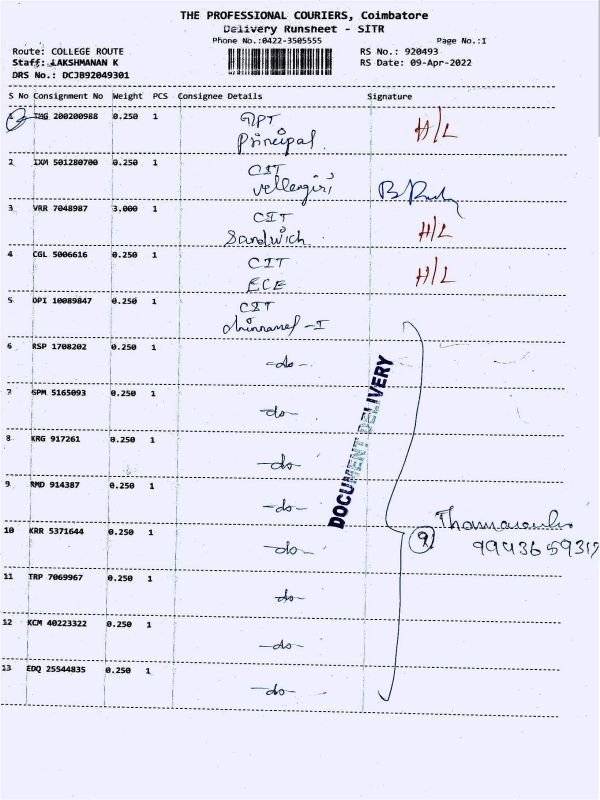 THE PROFESSIONAL COURIERS, Coimbatore
Delivery Runsheet - SITR
Phone No.:0422-3505555 Page No.:1
Route: COLLEGE ROUTE RS No.: 920493
Staff: LAKSHMANAN K RS Date: 09-Apr-2022
DRS No.: DCJB92049301
S No Consignment No Weight PCS Consignee Details Signature
1 TMG 200200988 0.250 1 GPT H/L
Principal
2 IXM 501280700 0.250 1 CIT
vellengiri
3 VRR 7048987 3.000 1 CIT H/L
Sandwich
4 CGL 5006616 0.250 1 CIT H/L
ECE
5 OPI 10089847 0.250 1 CIT
-I
6 RSP 1708202 0.250 1 -do-
7 GPM 5165093 0.250 1 -do-
8 KRG 917261 0.250 1 -do-
9 RMD 914387 0.250 1 -do-
DOCUMENT DELIVERY
10 KRR 5371644 0.250 1 -do- 9 9943659317
11 TRP 7069967 0.250 1 -do-
12 KCM 40223322 0.250 1 -do-
13 EDQ 25544835 0.250 1 -do-